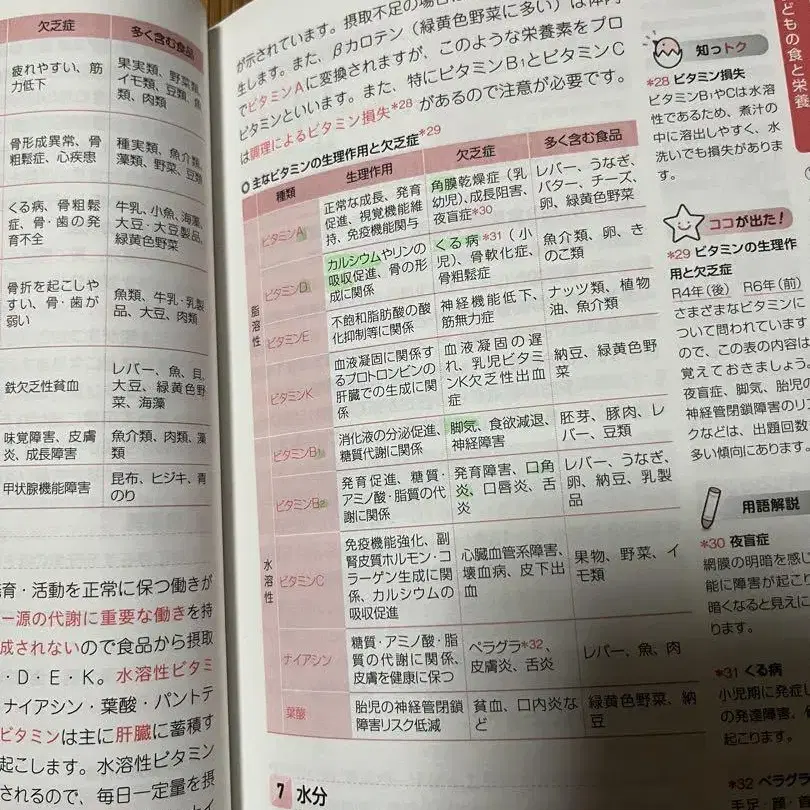 欠乏症 多く含む食品
疲れやすい、筋
力低下
果実類、野菜類、
イモ類、豆類、魚
類、肉類
骨形成異常、骨
粗鬆症、心疾患
種実類、魚介類、
藻類、野菜、豆類
くる病、骨粗鬆
症、骨・歯の発
育不全
牛乳、小魚、海藻、
大豆・大豆製品、
緑黄色野菜
骨折を起こしや
すい、骨・歯が
弱い
魚類、牛乳・乳製
品、大豆、肉類
鉄欠乏性貧血
レバー、魚、貝、
大豆、緑黄色野
菜、海藻
味覚障害、皮膚
炎、成長障害
魚介類、肉類、藻
類
甲状腺機能障害
昆布、ヒジキ、青
のり
育・活動を正常に保つ働きが
ー源の代謝に重要な働きを持
成されないので食品から摂取
・D・E・K。水溶性ビタミ
ナイアシン・葉酸・パントテ
ビタミンは主に肝臓に蓄積す
起こします。水溶性ビタミン
されるので、毎日一定量を摂
が示されています。摂取不足の場合に
生します。また、βカロテン（緑黄色野菜に多い）は体内
でビタミンAに変換されますが、このような栄養素をプロ
ビタミンといいます。また、特にビタミンB₁とビタミンC
は調理によるビタミン損失*28があるので注意が必要です。
主なビタミンの生理作用と欠乏症*29
種類 生理作用 欠乏症 多く含む食品
脂溶性
ビタミンA
正常な成長、発育
促進、視覚機能維
持、免疫機能関与
角膜乾燥症（乳
幼児）、成長阻害、
夜盲症*30
レバー、うなぎ、
バター、チーズ、
卵、緑黄色野菜
ビタミンD
カルシウムやリンの
吸収促進、骨の形
成に関係
くる病*31（小
児）、骨軟化症、
骨粗鬆症
魚介類、卵、き
のこ類
ビタミンE
不飽和脂肪酸の酸
化抑制等に関係
神経機能低下、
筋無力症
ナッツ類、植物
油、魚介類
ビタミンK
血液凝固に関係す
るプロトロンビンの
肝臓での生成に関
係
血液凝固の遅
れ、乳児ビタミ
ンK欠乏性出血
症
納豆、緑黄色野
菜
水溶性
ビタミンB₁
消化液の分泌促進、
糖質代謝に関係
脚気、食欲減退、
神経障害
胚芽、豚肉、レ
バー、豆類
ビタミンB₂
発育促進、糖質・
アミノ酸・脂質の代
謝に関係
発育障害、口角
炎、口唇炎、舌
炎
レバー、うなぎ、
卵、納豆、乳製
品
ビタミンC
免疫機能強化、副
腎皮質ホルモン・コ
ラーゲン生成に関
係、カルシウムの
吸収促進
心臓血管系障害、
壊血病、皮下出
血
果物、野菜、イ
モ類
ナイアシン
糖質・アミノ酸・脂
質の代謝に関係、
皮膚を健康に保つ
ペラグラ*32、
皮膚炎、舌炎
レバー、魚、肉
葉酸
胎児の神経管閉鎖
障害リスク低減
貧血、口内炎な
ど
緑黄色野菜、納
豆
7 水分
どもの食と栄養
知っトク
*28 ビタミン損失
ビタミンB₁やCは水溶
性であるため、煮汁の
中に溶出しやすく、水
洗いでも損失がありま
す。
ココが出た！
*29 ビタミンの生理作
用と欠乏症
R4年（後） R6年（前）
さまざまなビタミンに
ついて問われています
ので、この表の内容は
覚えておきましょう。
夜盲症、脚気、胎児の
神経管閉鎖障害のリス
クなどは、出題回数
多い傾向にあります。
用語解説
*30 夜盲症
網膜の明暗を感じ
能に障害が起こり
暗くなると見えに
ります。
*31 くる病
小児期に発症し
の発達障害、
起こります。
*32 ペラグラ
手足・顔・